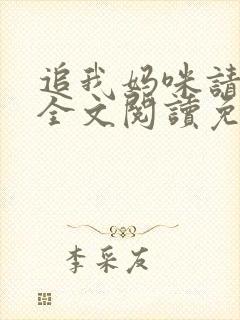 追我妈咪請
全文閱讀免
李采友